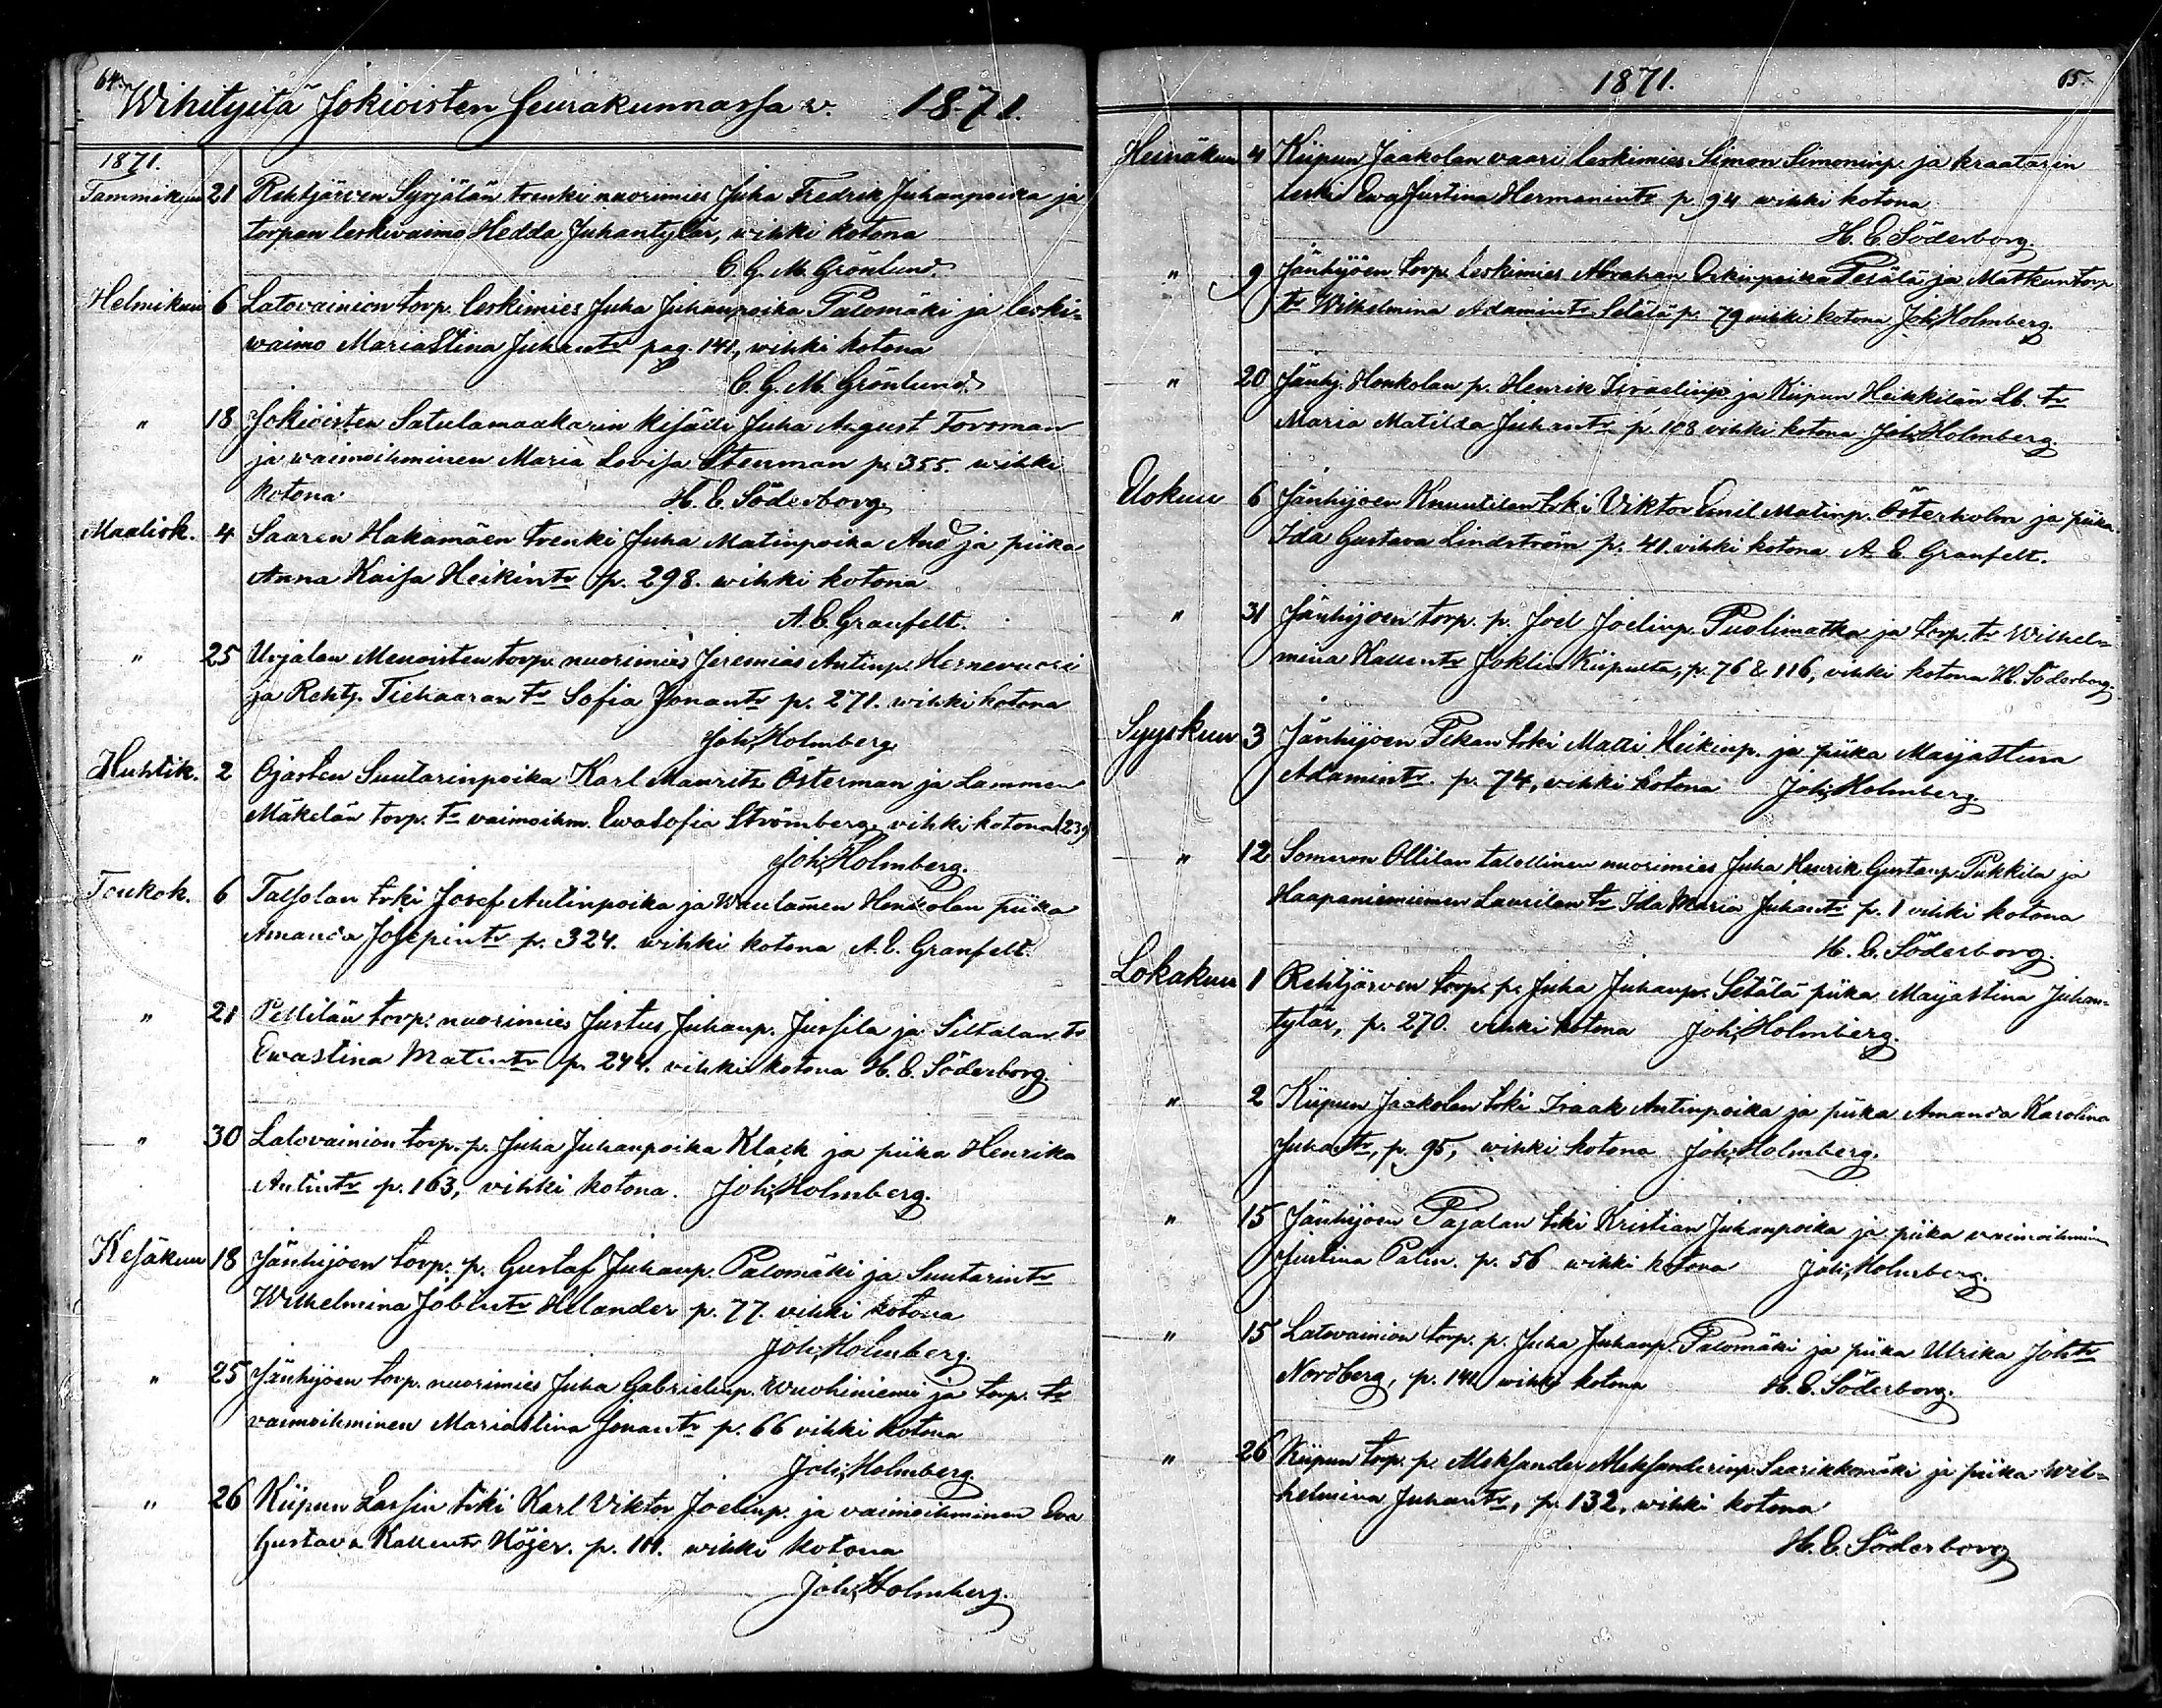 64.
Wihityitä Jokioisten Seurakunnassa v. 1871.
1871.
Tammikuu 21 Rehtjärven Syrjälän trenki nuorimies Juha Fredrik Juhanpoika ja
torpan leskivaimo Hedda Juhantytär, wihki kotona
C. G. M. Grönlund.
Helmikuu 6 Latovainion torp. leskimies Juha Juhanpoika Palomäki ja leski-
waimo Mariastina Juhantr pag. 141, wihki kotona
C. G. M. Grönlund.
" 18 Jokioisten Satulamaakarin kisälli Juha August Forsman
ja waimoihminen Maria Lovisa Stenman p. 355. wihki
kotona H. E. Söderborg.
Maalisk. 4 Saaren Hakamäen trenki Juha Matinpoika ja piika
Anna Kaisa Heikintr p. 298. wihki kotona
A. E. Granfelt.
" 25 Urjalan Menoisten torp. nuorimies Jeremias Antinp. Hernevuori
ja Rehtj. Tiehaaran tr Sofia Jonantr p. 271. wihki kotona
Joh. Holmberg.
Huhtik. 2 Ojasten Suutarinpoika Karl Maurits Österman ja Lammen
Mäkelän torp. tr vaimoihm. Ewa Sofia Strömberg. vihki kotona (239)
Joh. Holmberg.
Toukok. 6 Talsolan trki Josef Antinpoika ja Henkolan piika
Amanda Josepintr p. 324. wihki kotona A. E. Granfelt.
" 21 Pellilän torp. nuorimies Justus Juhanp. Jussila ja Siltalan tr
Ewastina Matintr p. 244. vihki kotona H. E. Söderborg.
" 30 Latovainion torp. p. Juha Juhanpoika Klack ja piika Henrika
Antintr p. 163, vihki kotona. Joh. Holmberg.
Kesäkuu 18 Jänhijoen torp. p. Gustaf Juhanp. Palomäki ja Suutarintr
Wilhelmina Jobintr Helander p. 77. vihki kotona
Joh. Holmberg.
" 25 Jänhijoen torp. nuorimies Juha Gabrielinp. Wuohiniemi ja torp. tr
vaimoihminen Mariastina Jonantr p. 66 vihki kotona
Joh. Holmberg.
" 26 Kiipun Lassin trki Karl Viktor Joelinp. ja vaimoihminen Eva
Gustava Kallentr Höjer. p. 101. wihki kotona
Joh. Holmberg.
1871. 65.
Heinäkuu 4 Kiipun Jaakolan vaari leskimies Simon Simoninp. ja kraatarin
leski Ewa Justina Hermanintr p. 94 wihki kotona
H. E. Söderborg.
" 9 Jänhijöen torp. leskimies Abraham Erkinpoika Pesälä ja Matkun torp
tr Wilhelmina Adamintr Setälä p. 79 vihki kotona Joh. Holmberg.
" 20 Jänhj. Honkolan p. Henrik Israelinp. ja Kiipun Heikkilän Lb. tr
Maria Matilda Juhantr p. 108 vihki kotona Joh. Holmberg.
Elokuu 6 Jänhijoen Knuutilan trki Viktor Emil Matinp. Österholm ja piika
Ida Gustava Lindström p. 41. vihki kotona A. E. Granfelt.
" 31 Jänhijoen torp. p. Joel Joelinp. Puolimatka ja torp. tr Wilhel-
mina Kallentr Joklin Kiipulta, p. 76 & 116, vihki kotona H. E. Söderborg.
Syyskuu 3 Jänhijoen Pekan trki Matti Heikinp. ja piika Maijastina
Adamintr. p. 74, vihki kotona Joh. Holmberg.
" 12 Someron Ollilan talollinen nuorimies Juha Henrik Gustanp. Pukkila ja
Haapaniemiemen Laurilan tr Ida Maria Juhantr p. 1 vihki kotona
H. E. Söderborg.
Lokakuu 1 Rehtjärven torp. p. Juha Juhanp. Setälä piika Maijastina Juhan-
tytär, p. 270. vihki kotona Joh. Holmberg.
" 2 Kiipun Jaakolan trki Isaak Antinpoika ja piika Amanda Karolina
Juhantr, p. 95, wihki kotona Joh. Holmberg.
" 15 Jänhijoen Pajalan trki Kristian Juhanpoika ja piika vaimoihminen
Justina Palin. p. 56 wihki kotona Joh. Holmberg.
" 15 Latovainion torp. p. Juha Juhanp. Palomäki ja piika Ulrika Johtr
Nordberg, p. 141 wihki kotona H. E. Söderborg.
" 26 Kiipun torp. p. Aleksander Aleksanderinp. Saarikkomäki ja piika Wil-
helmina Juhantr, p. 132, wihki kotona
H. E. Söderborg